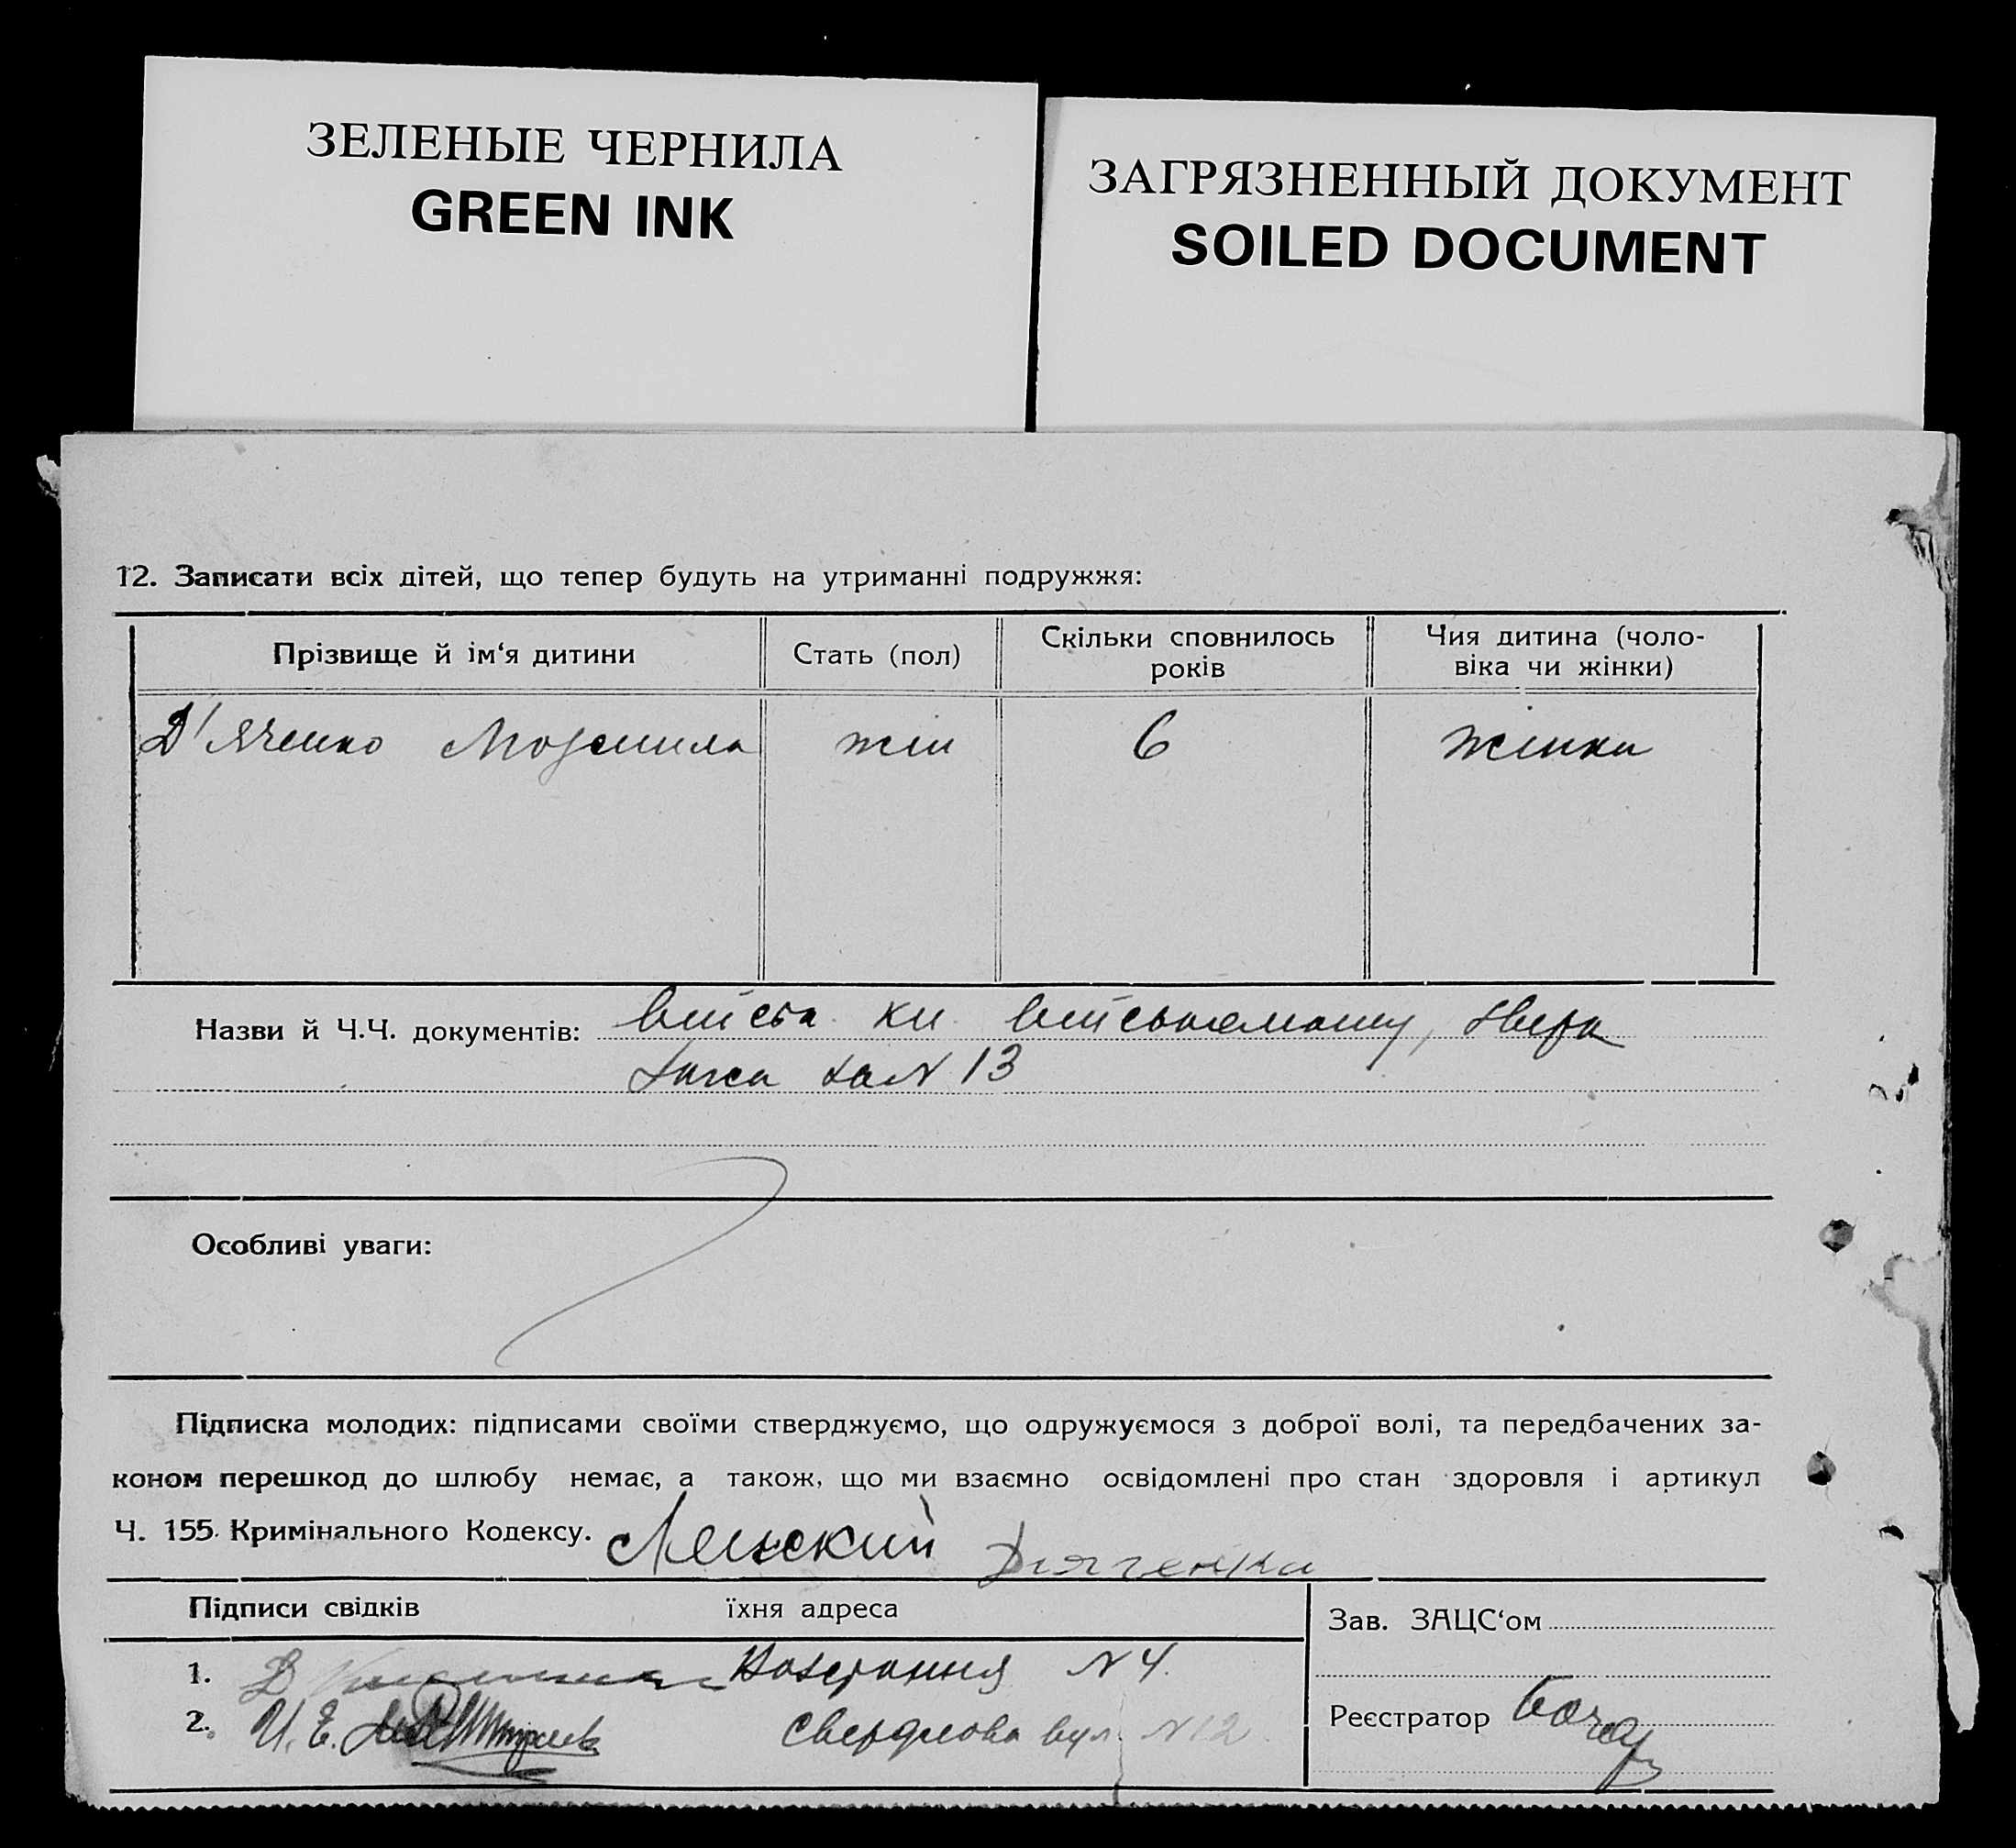 ЗЕЛЕНЫЕ ЧЕРНИЛА
GREEN INK
ЗАГРЯЗНЕННЫЙ ДОКУМЕНТ
SOILED DOCUMENT
12. Записати всіх дітей, що тепер будуть на утриманні подружжя:
Прізвище й ім‘я дитини Стать (пол) Скільки сповнилось років Чия дитина (чоловіка чи жінки)
Д'яченко Людмила жін 6 жінки
Назви й Ч.Ч. документів:
13
Особливі уваги:
Підписка молодих: підписами своїми стверджуємо, що одружуємося з доброї волі, та передбачених за-
коном перешкод до шлюбу немає, а також, що ми взаємно освідомлені про стан здоровля і артикул
Ч. 155 Кримінального Кодексу. Дяченко
Підписи свідків їхня адреса Зав. ЗАЦС‘ом
1. N 4.
2. И. Е. Свердлова вул N 12
Реєстратор